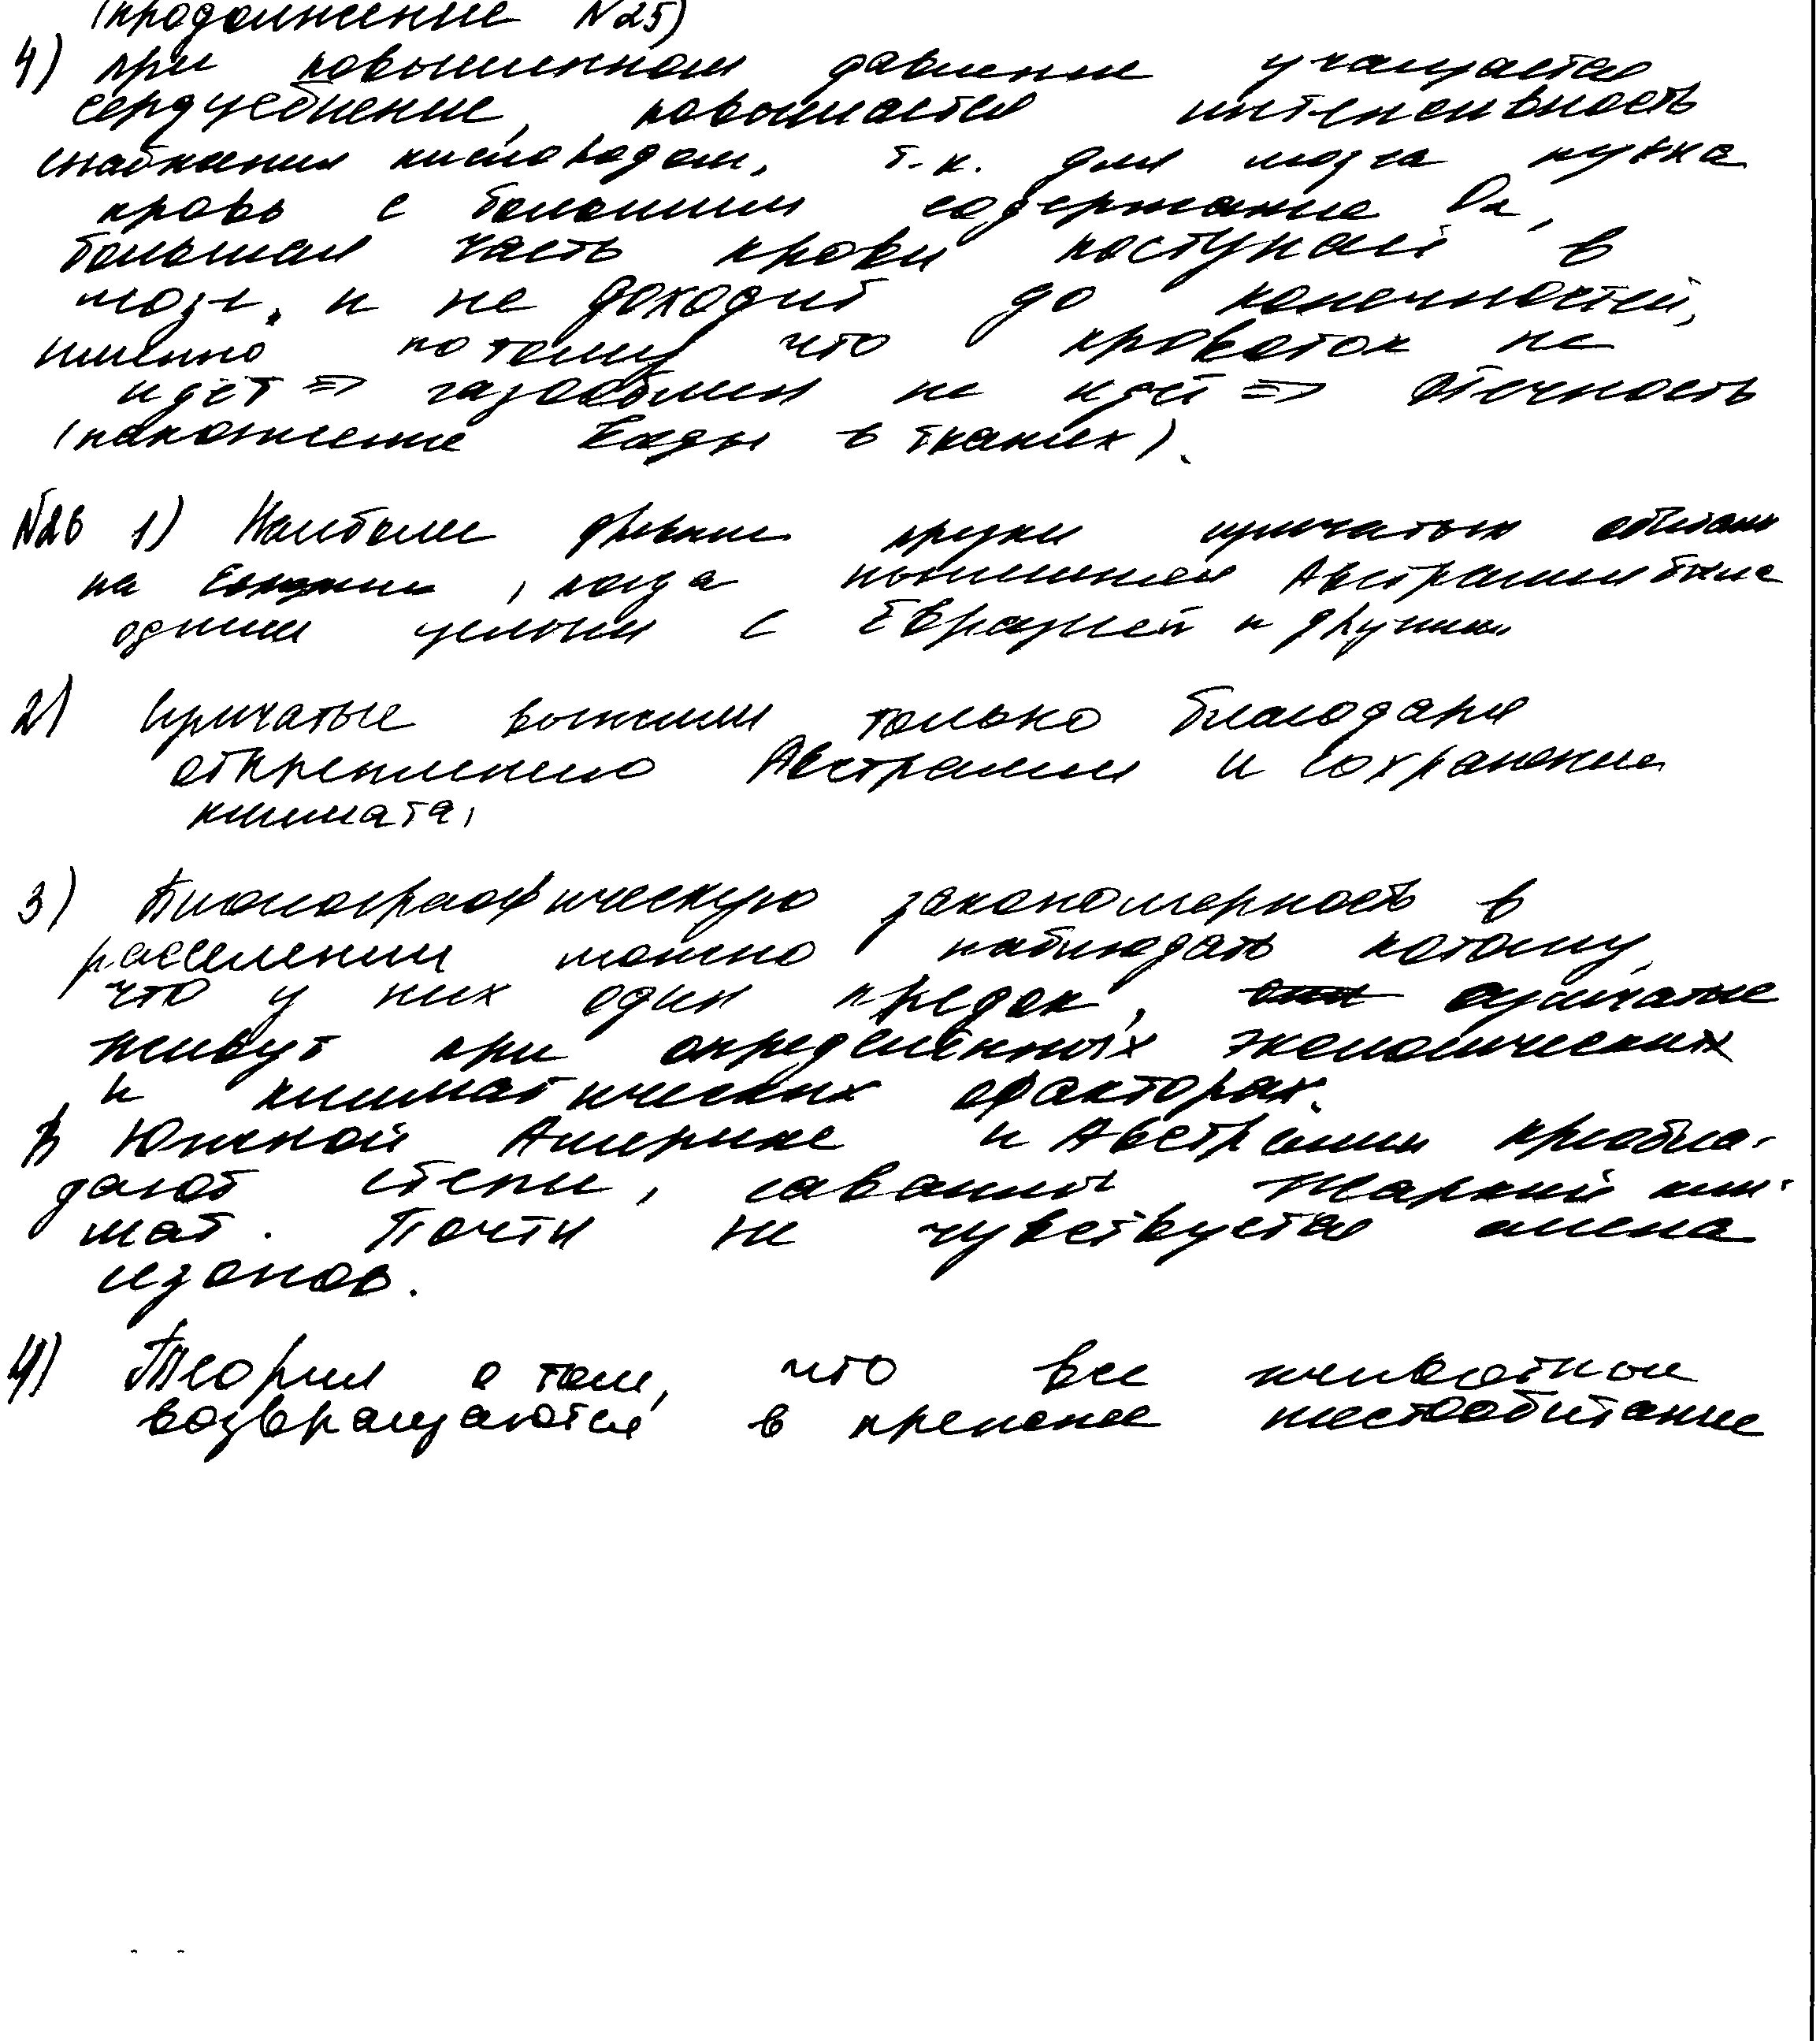 (продолжение N25)
4) при повышенном давление учащается
сердцебиение, повышается интенсивность
снабжения кислородом, т.к. для мозга нужна
кровь с большим содержание O2,
большая часть крови поступает в
мозг, и не доходит до конечностей,
именно потому что кровоток не
идёт => газообмен не идёт => отечность
(накопление воды в тканях).
N26 1) Наиболее древние предки сумчатых обитали
на , когда нынешняя Австралия была
одним целым с Евразией и другими
2) Сумчатые выжили только благодаря
откреплению Австралии и сохранение
климата.
3) Биогеографическую закономерность в
расселении можно наблюдать потому,
что у них один предок, сумчатые
живут при определённых экологических
и климатических факторах.
В Южной Америке и Австралии преобла-
дают степи, саванны, жаркий кли-
мат. Почти не чувствуется смена
сезонов.
4) Теория о том, что все животные
возвращаются в прежнее местообитание